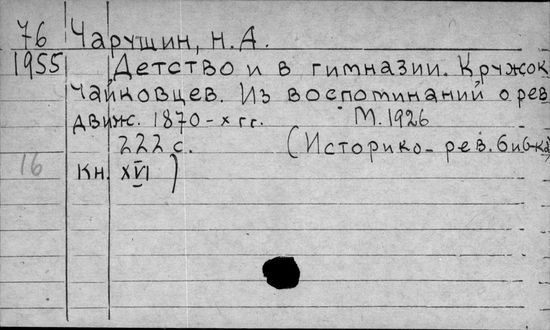 76 Чарущин, Н.А.
1955 Детство и в гимназии. Кружок
Чайковцев. Из воспоминаний о рев
движ. 1870-х гг. М. 1926
222 с. (Историко-рев. биб-ка
16 Кн. XVI)